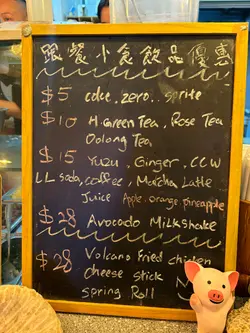 跟餐小食飲品優惠
$5 coke, zero, sprite
$10 H.Green Tea, Rose Tea
Oolong Tea
$15 Yuzu, Ginger, CCW
LL soda, coffee, Matcha Latte
Juice Apple orange pineapple
$28 Avocado Milkshake
$28 Volcano fried chicken
cheese stick
spring Roll